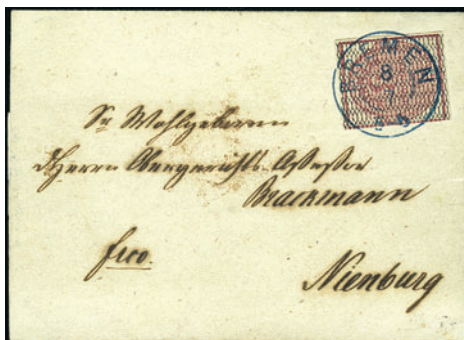 BREMEN
8
7
Sr Wohlgeboren
d Herrn Obergerichts-Assessor
Brackmann
frco.
Nienburg